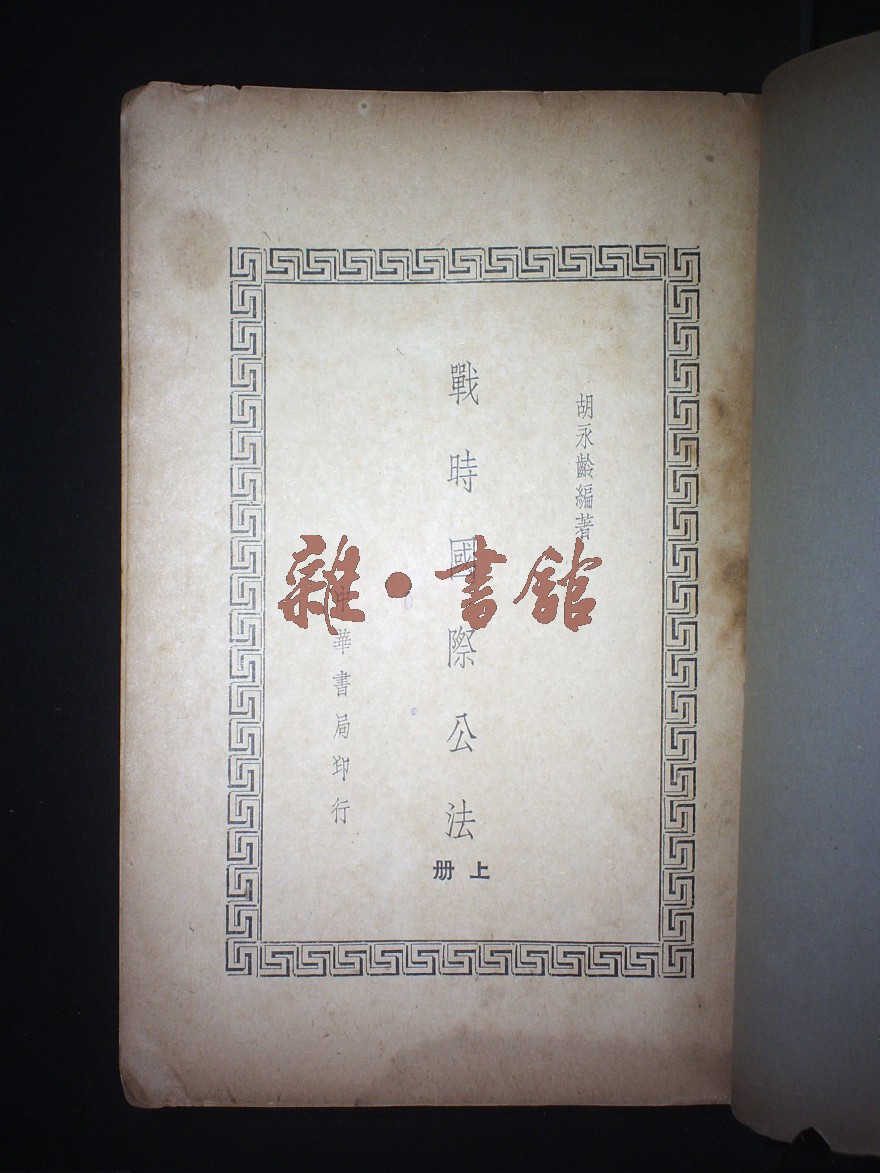 胡永齡編著
戰時國際公法
上册
中華書局印行
雜·書館